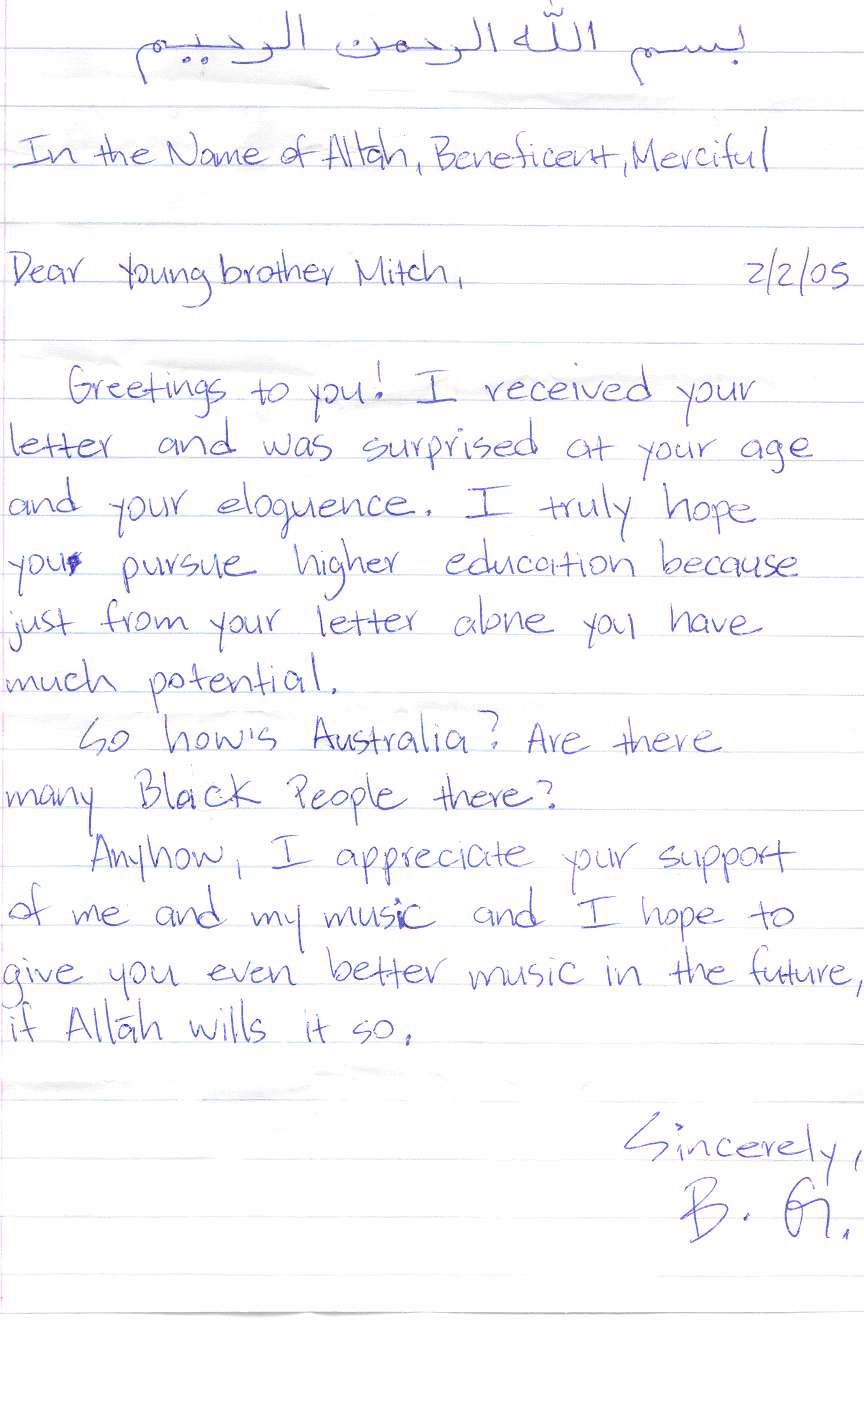 بسم اللّٰه الرحمن الرحيم
In the Name of Allah, Beneficent, Merciful
Dear Young brother Mitch, 2/2/05
Greetings to you! I received your
letter and was surprised at your age
and your eloquence. I truly hope
you pursue higher education because
just from your letter alone you have
much potential.
So how's Australia? Are there
many Black People there?
Anyhow, I appreciate your support
of me and my music and I hope to
give you even better music in the future,
if Allāh wills it so.
Sincerely,
B. G.